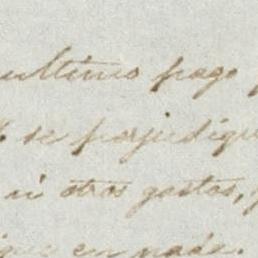 ultimo pago
se perjudique
ni otros gastos,
en nada.